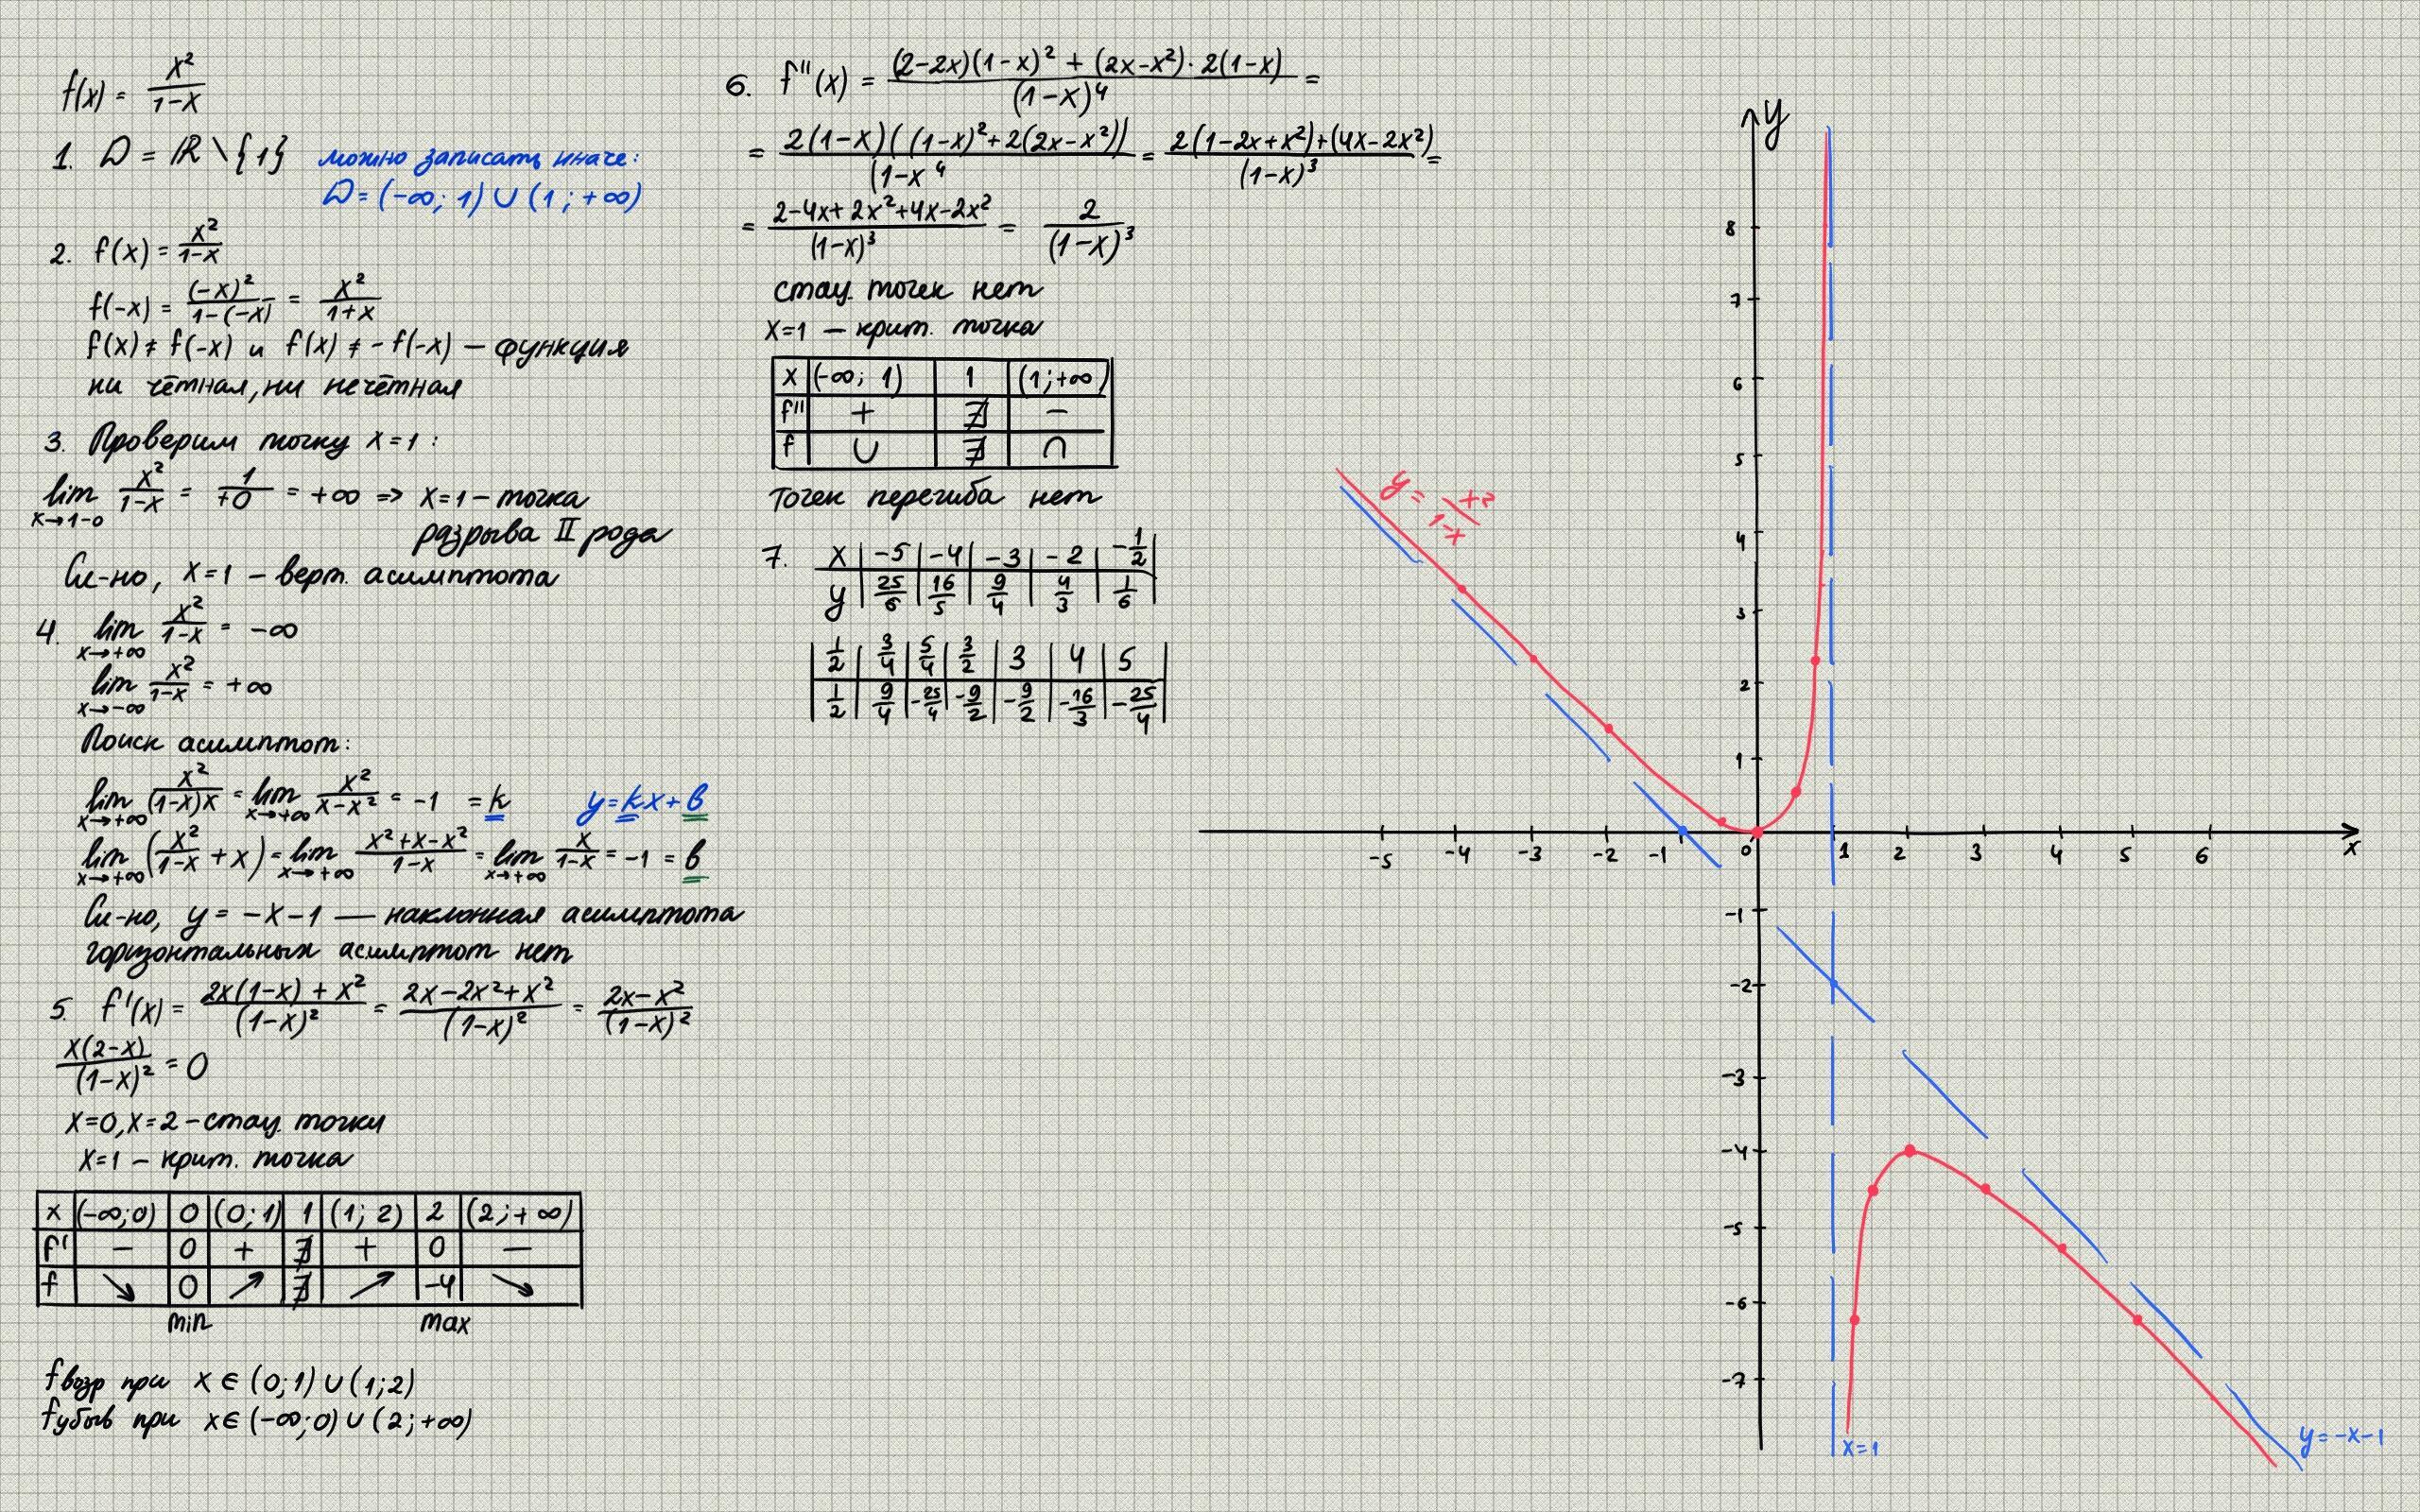 f(x) = x²/(1-x)
1. D = ℝ \ {1}
можно записать иначе:
D = (-∞; 1) ∪ (1; +∞)
2. f(x) = x²/(1-x)
f(-x) = (-x)²/(1-(-x)) = x²/(1+x)
f(x) ≠ f(-x) и f(x) ≠ -f(-x) — функция
ни чётная, ни нечётная
3. Проверим точку x = 1:
lim x→1-0 x²/(1-x) = 1/(+0) = +∞ => x=1 – точка
разрыва II рода
Сл-но, x=1 – верт. асимптота
4. lim x→+∞ x²/(1-x) = -∞
lim x→-∞ x²/(1-x) = +∞
Поиск асимптот:
lim x→+∞ x²/((1-x)x) = lim x→+∞ x²/(x-x²) = -1 = k
y = kx + b
lim x→+∞ (x²/(1-x) + x) = lim x→+∞ (x²+x-x²)/(1-x) = lim x→+∞ x/(1-x) = -1 = b
Сл-но, y = -x-1 — наклонная асимптота
горизонтальных асимптот нет
5. f'(x) = (2x(1-x) + x²)/(1-x)² = (2x-2x²+x²)/(1-x)² = (2x-x²)/(1-x)²
x(2-x)/(1-x)² = 0
x=0, x=2 – стац. точки
x=1 – крит. точка
x (-∞;0) 0 (0;1) 1 (1;2) 2 (2;+∞)
f' – 0 + ∄ + 0 –
f ↘ 0 ↗ ∄ ↗ -4 ↘
min max
f возр при x ∈ (0;1) ∪ (1;2)
f убыв при x ∈ (-∞;0) ∪ (2;+∞)
6. f''(x) = ((2-2x)(1-x)² + (2x-x²)·2(1-x))/(1-x)⁴ =
= 2(1-x)((1-x)²+2(2x-x²))/(1-x⁴ = 2(1-2x+x²)+(4x-2x²)/(1-x)³ =
= (2-4x+2x²+4x-2x²)/(1-x)³ = 2/(1-x)³
стац. точек нет
x=1 – крит. точка
x (-∞; 1) 1 (1;+∞)
f'' + ∄ –
f ∪ ∄ ∩
точек перегиба нет
7. x -5 -4 -3 -2 -1/2
y 25/6 16/5 9/4 4/3 1/6
1/2 3/4 5/4 3/2 3 4 5
1/2 9/4 -25/4 -9/2 -9/2 -16/3 -25/4
y
8
7
6
5
4
3
2
1
y = x²/(1-x)
-5 -4 -3 -2 -1 0 1 2 3 4 5 6 x
-1
-2
-3
-4
-5
-6
-7
x=1
y = -x-1